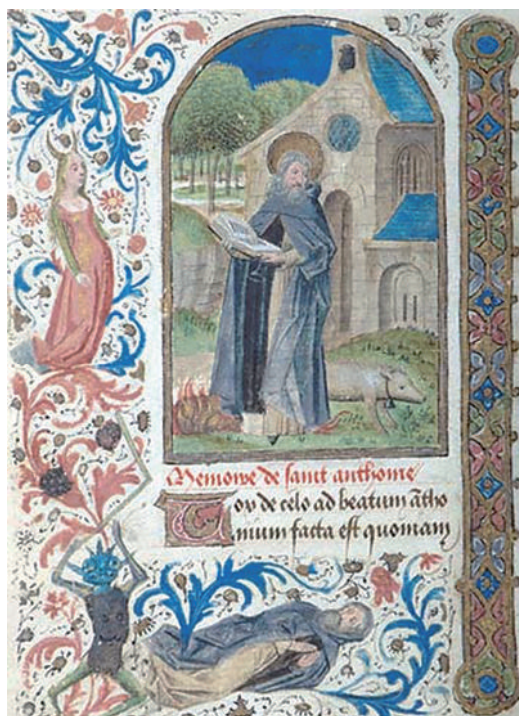 Memoire de sanct anthoine
Vox de celo ad beatum ātho
nium facta est quoniam